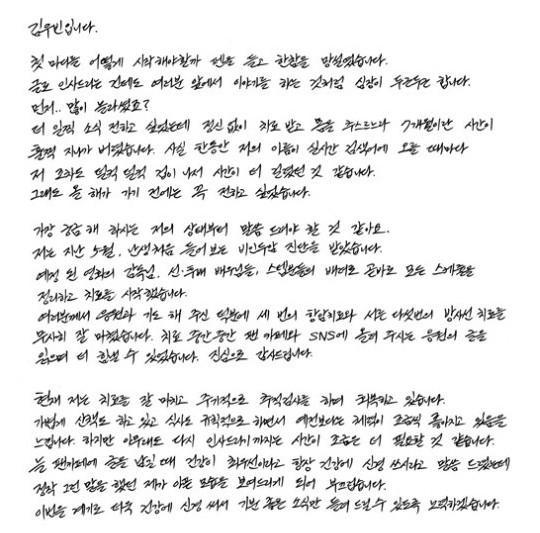 김우빈입니다.
첫 마디는 어떻게 시작해야할까 펜을 들고 한참을 망설였습니다.
글로 인사드리는 건데도 여러분 앞에서 이야기를 하는 것처럼 심장이 두근두근 합니다.
먼저.. 많이 놀라셨죠?
더 일찍 소식 전하고 싶었는데 정신 없이 치료 받고 몸을 추스르느라 7개월이란 시간이
훌쩍 지나가 버렸습니다. 사실 한동안 저의 이름이 실시간 검색어에 오를 때마다
저 조차도 덜컥 덜컥 겁이 나서 시간이 더 길었던 것 같습니다.
그래도 올 해가 가기 전에는 꼭 전하고 싶었습니다.
가장 궁금해 하시는 저의 상태부터 말씀 드려야 할 것 같아요.
저는 지난 5월, 난생처음 들어 보는 비인두암 진단을 받았습니다.
예정 된 영화의 감독님, 선·후배 배우님들, 스텝분들의 배려로 곧바로 모든 스케줄을
정리하고 치료를 시작했습니다.
여러분께서 응원과 기도 해 주신 덕분에 세 번의 항암치료와 서른 다섯번의 방사선 치료를
무사히 잘 마쳤습니다. 치료 중간중간 팬 카페와 SNS에 올려 주시는 응원의 글을
읽으며 더 힘낼 수 있었습니다. 진심으로 감사드립니다.
현재 저는 치료를 잘 마치고 주기적으로 추적검사를 하며 회복하고 있습니다.
가볍게 산책도 하고 있고 식사도 규칙적으로 하면서 예전보다는 체력이 조금씩 좋아지고 있음을
느낍니다. 하지만 아무래도 다시 인사드리기까지는 시간이 조금은 더 필요할 것 같습니다.
늘 팬카페에 글을 남길 때 건강이 최우선이라고 항상 건강에 신경 쓰시라고 말씀 드렸는데
정작 그런 말을 했던 제가 아픈 모습을 보여드리게 되어 부끄럽습니다.
이번을 계기로 더욱 건강에 신경 써서 기분 좋은 소식만 들려 드릴 수 있도록 노력하겠습니다.